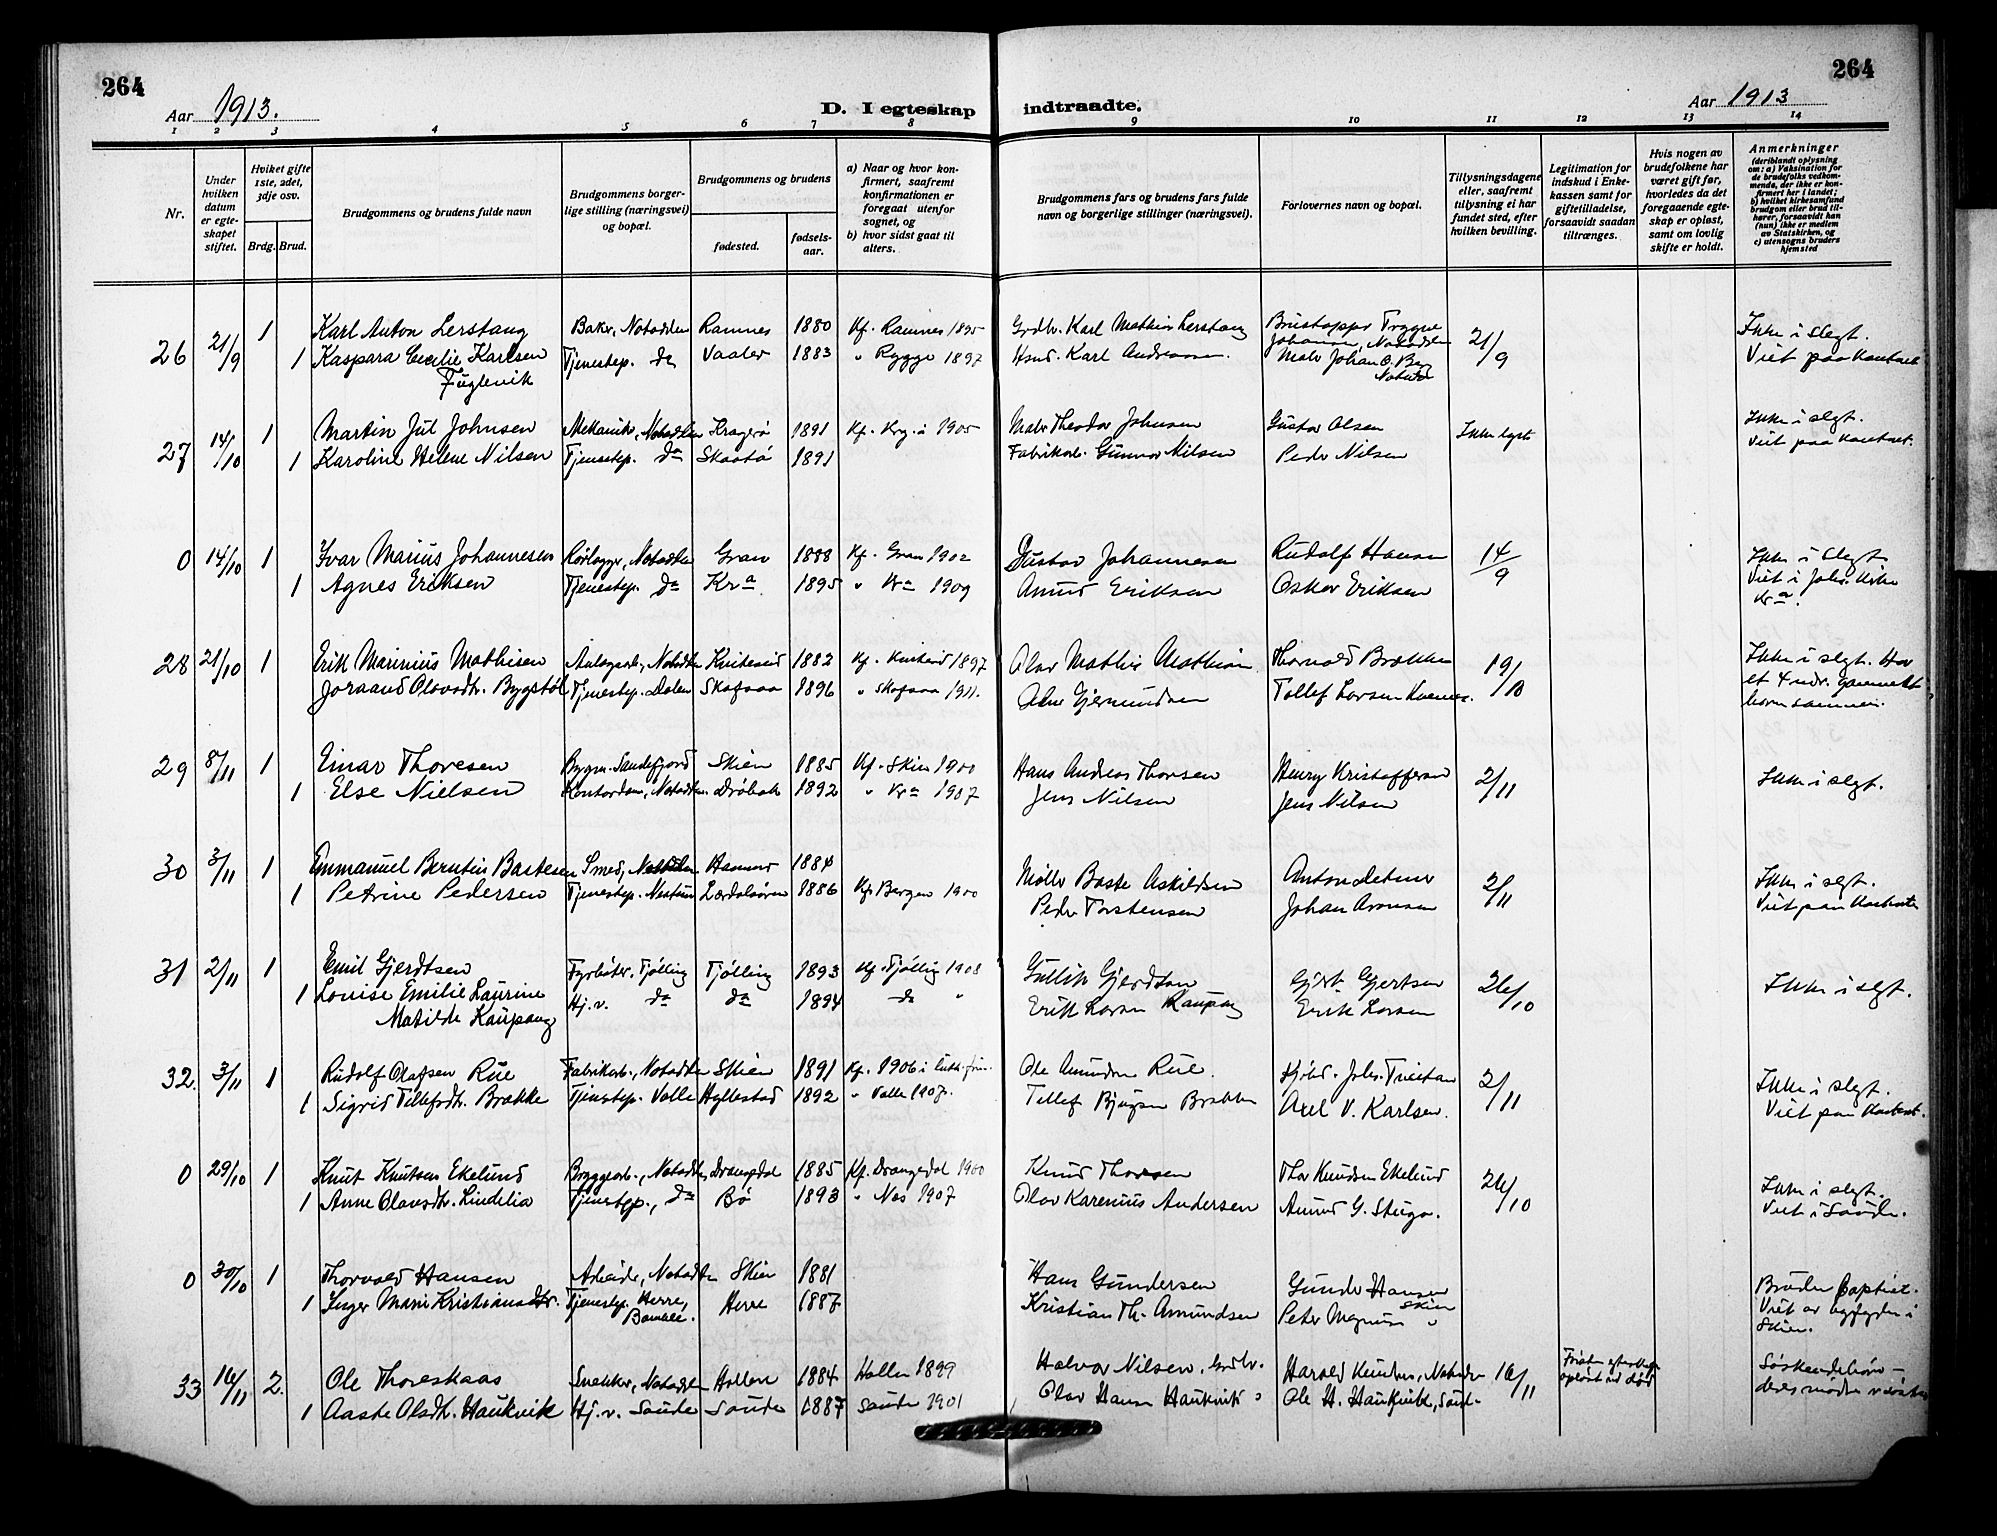 264
264
Aar 1913.
D. I egteskap indtraadte.
Aar 1913
1 2 3 4 5 6 7 8 9 10 11 12 13 14
Nr.
Under hvilken datum er egteskapet stiftet.
Hviket gifte 1ste, 2det, 3dje osv.
Brdg. Brud.
Brudgommens og brudens fulde navn
Brudgommens borgerlige stilling (næringsvei) og bopæl.
Brudgommens og brudens
fødested.
fødselsaar.
a) Naar og hvor konfirmert, saafremt konfirmationen er foregaat utenfor sognet, og
b) hvor sidst gaat til alters.
Brudgommens fars og brudens fars fulde navn og borgerlige stillinger (næringsvei).
Forlovernes navn og bopæl.
Tillysningsdagene eller, saafremt tillysning ei har fundet sted, efter hvilken bevilling.
Legitimation for indskud i Enkekassen samt for giftetilladelse, forsaavidt saadan tiltrænges.
Hvis nogen av brudefolkene har været gift før, hvorledes da det foregaaende egteskap er opløst, samt om lovlig skifte er holdt.
Anmerkninger (deriblandt oplysning om: a) Vaksination for de brudefolks vedkommende, der ikke er konfirmert her i landet; b) hvilket kirkesamfund brudgom eller brud tilhører, forsaavidt han (hun) ikke er medlem av Statskirken, og c) utensogns bruders hjemsted
26 21/9 1 Karl Anton Lerstang Baker, Notodden Ramnes 1880 Kf. Ramnes 1895 Grdbr. Karl Mathias Lerstang Trygve Johansen, Notodden 21/9 Ikke i slegt.
1 Kaspara Cecilie Karlsen Fuglevik Tjenestep. do Vaaler 1883 " Rygge 1897 Karl Andreassen Maler Johan O. Notodden Viet paa kontoret
27 14/10 1 Martin Jul Johnsen Mekanik., Notodden Kragerø 1891 Kf. Krg.ø 1905 Maler Theodor Johnsen Gustav Olsen Ikke lyst Ikke i slegt.
1 Karoline Helene Nilsen Tjenestep. do Skaatø 1891 Fabrikarb. Gunnar Nilsen Peder Nilsen Viet paa kontoret.
0 14/10 1 Ivar Marius Johannesen Rørlægger, Notodden Gran 1888 Kf. Gran 1902 Gustav Johannesen Rudolf Hansen 14/9 Ikke i slegt
1 Agnes Eriksen Tjenestep. do Kra. 1895 " Kra 1909 Amund Eriksen Oskar Eriksen Viet i Johs. kirke Kra.
28 21/10 1 Erik Marinius Mathisen Anlægsarb., Notodden Kviteseid 1882 Kf. Kviteseid 1897 Olav Mathis Mathisen Thorvald Brækken 19/10 Ikke i slegt. Har
Joraand Olavsdtr. Bygstøl Tjenestep. Dalen Skafsaa 1896 " Skafsaa 1911. Gjermundsen Tollef Larsen et 4 mdr. gammelt barn sammen.
29 8/11 1 Einar Thoresen Bygm. Sandefjord Skien 1885 Kf. Skien 1900 Hans Andreas Thoresen Henry Kristoffersen 2/11 Ikke i slegt.
1 Else Nielsen Kontordame, Notodden Drøbak 1892 " Kra 1907 Jens Nilsen Jens Nilsen
30 3/11 1 Emmanuel Berntin Bastesen Smed, Notodden Hammer 1884 Møller Baste Askildsen Anton 2/11 Ikke i slegt.
1 Petrine Pedersen Tjenestep. Lærdalsøren 1886 Kf. Bergen 1900 Peder Torstensen Johan Aronsen Viet paa kontoret
31 2/11 1 Emil Gjerdtsen Fyrbøter. Tjølling Tjølling 1893 Kf. Tjølling 1908 Gullik Gjerdtsen Gjert Gjertsen 26/10 Ikke i slegt.
1 Louise Emilie Laurine Matilde Kaupang Hj.v. do do 1894 do " Erik Larsen Kaupang Erik Larsen
32. 3/11 1 Rudolf Olafsen Rue Fabrikarb., Notodden Skien 1891 Kf. 1906 i luth. frim. Ole Amundsen Rue. Johs. Tveitan 2/11 Ikke i slegt.
1 Sigrid Tellefsdtr. Brække Tjenestep. Valle Hyllestad 1892 " Valle 1907. Tellef Bjugsen Brække Axel V. Karlsen. Viet paa kontoret.
0 29/10 1 Knut Knutsen Ekelund Byggearb., Notodden Drangedal 1885 Kf. Drangedal 1900 Knud Thorsen Thor Knudsen Ekelund 26/10 Ikke i slegt.
1 Anne Olavsdtr. Lindelia Tjenestep., do Bø 1893 " Nes 1907 Olav Karenius Andersen Amund G. Stuga. Viet i Saude.
0 30/10 1 Thorvald Hansen Arbeider, Notodden Skien 1881 Hans Gundersen Gunder Hansen Skien Bruden baptist.
1 Inger Marie Kristiansdtr. Tjenestep. Herre, Bamble. Herre 1887 Kristian Th. Amundsen Peter Magnus " Viet av byfogden i Skien.
33 16/11 2. Ole Thoreskaas Snekker, Notodden Hollen 1884 Hollen 1899 Halvor Nilsen, Grdbr. Harald Knudsen, Notodden 16/11 Søskendebørn –
1 Aaste Olsdtr. Haukvik Hj.v. Saude Saude 1887 Saude 1901 Olav Hansen Haukvik " Ole H. Haukvik, Saude deres mødre søstre